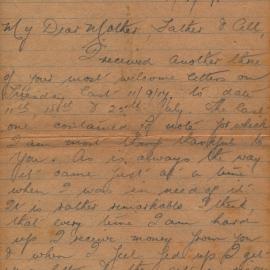 My Dear Mother Father & All,
I received another three
of your most welcome letters on
Tuesday last 11/9/17, to date
11th, 18th & 25th July. The last
one contained £1 note for which
I am most thankful to
you. As is always the way
it came just at a time
when I was in need of it.
It is rather remarkable I think
that every time I am hard
up I receive money from you
& when I feel fed up I get